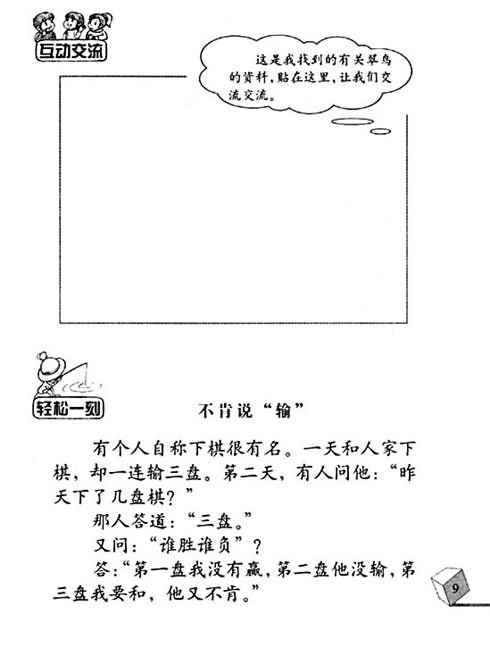 互动交流
这是我找到的有关翠鸟
的资料，贴在这里，让我们交
流交流。
轻松一刻
不肯说“输”
有个人自称下棋很有名。一天和人家下
棋，却一连输三盘。第二天，有人问他：“昨
天下了几盘棋？”
那人答道：“三盘。”
又问：“谁胜谁负”？
答：“第一盘我没有赢，第二盘他没输，第
三盘我要和，他又不肯。”
9